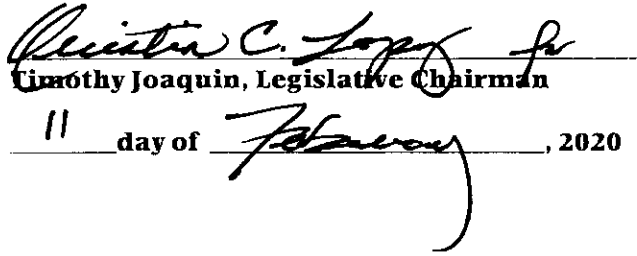 Quintin C. Lopez for
Timothy Joaquin, Legislative Chairman
11 day of February, 2020